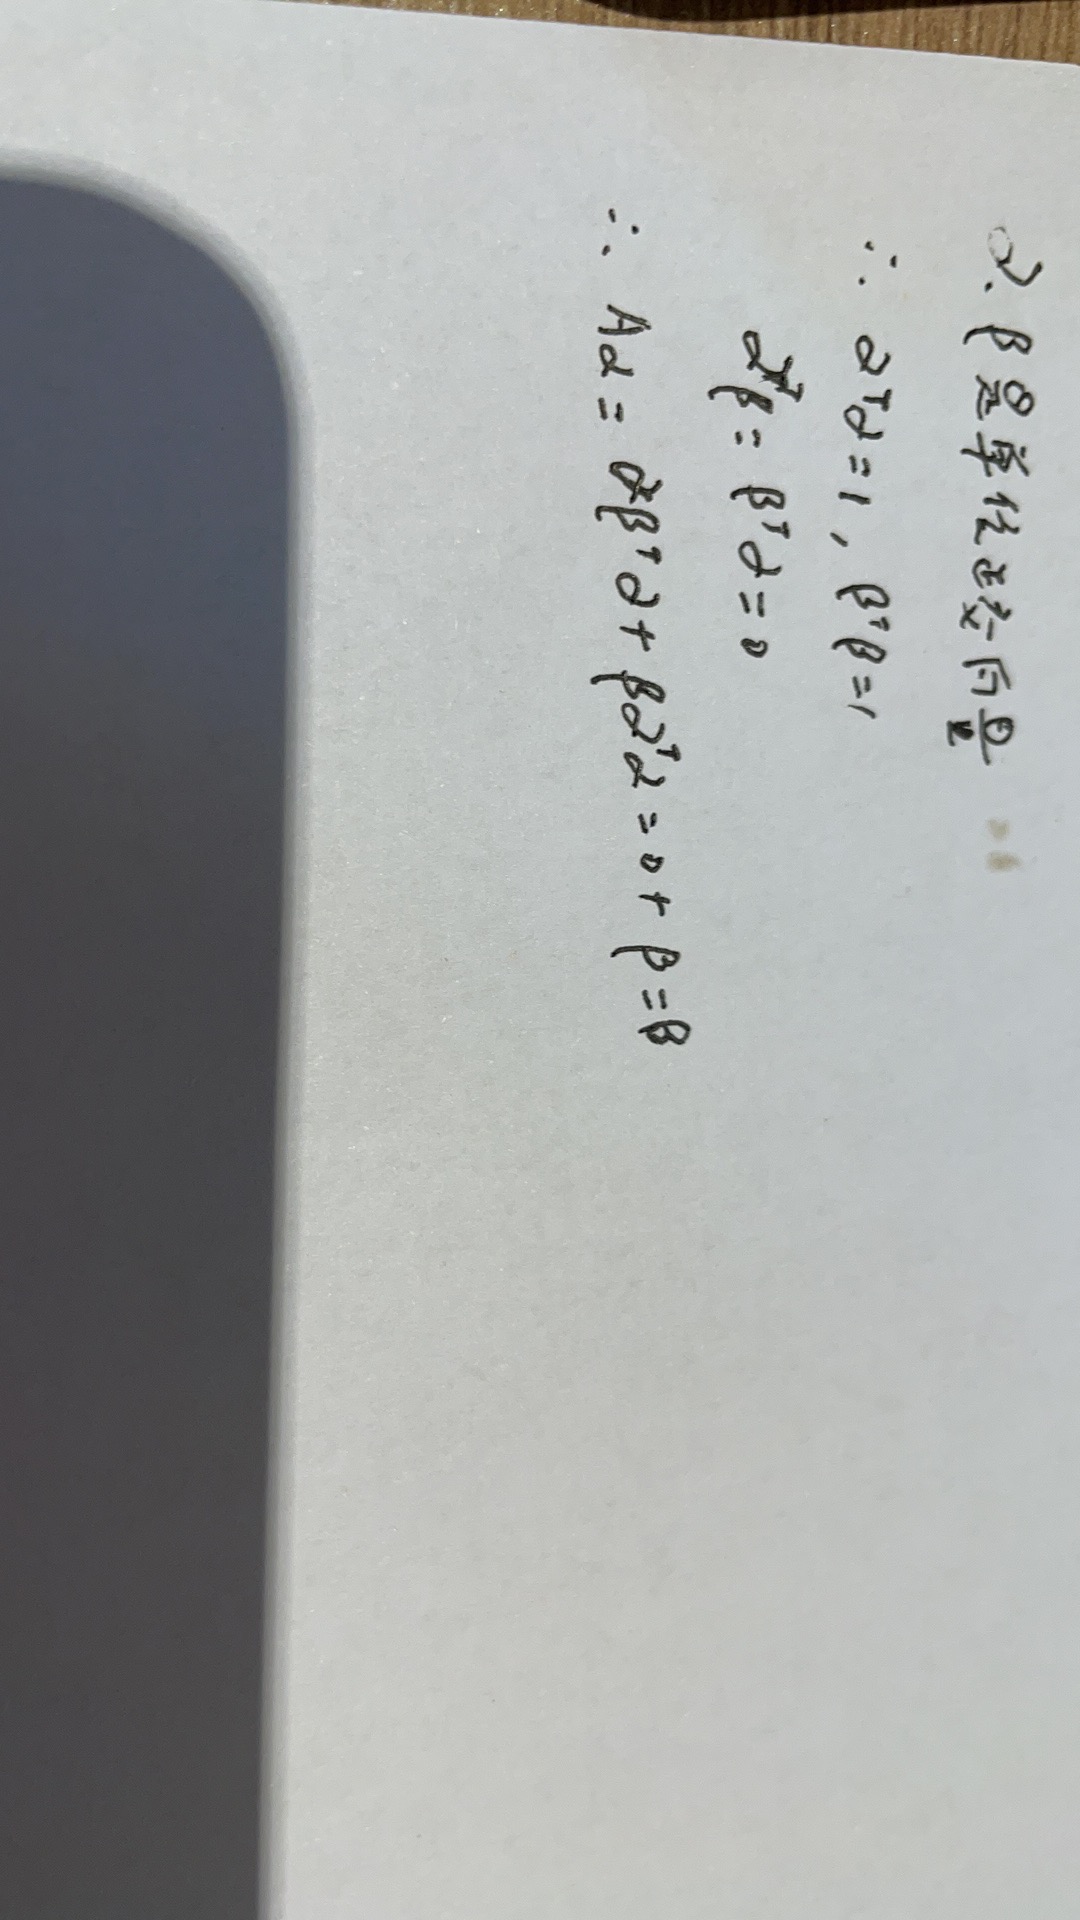 α.β是单位正交向量
∴ αᵀα=1, βᵀβ=1
αᵀβ=βᵀα=0
∴ Aα=αβᵀα+βαᵀα=0+β=β